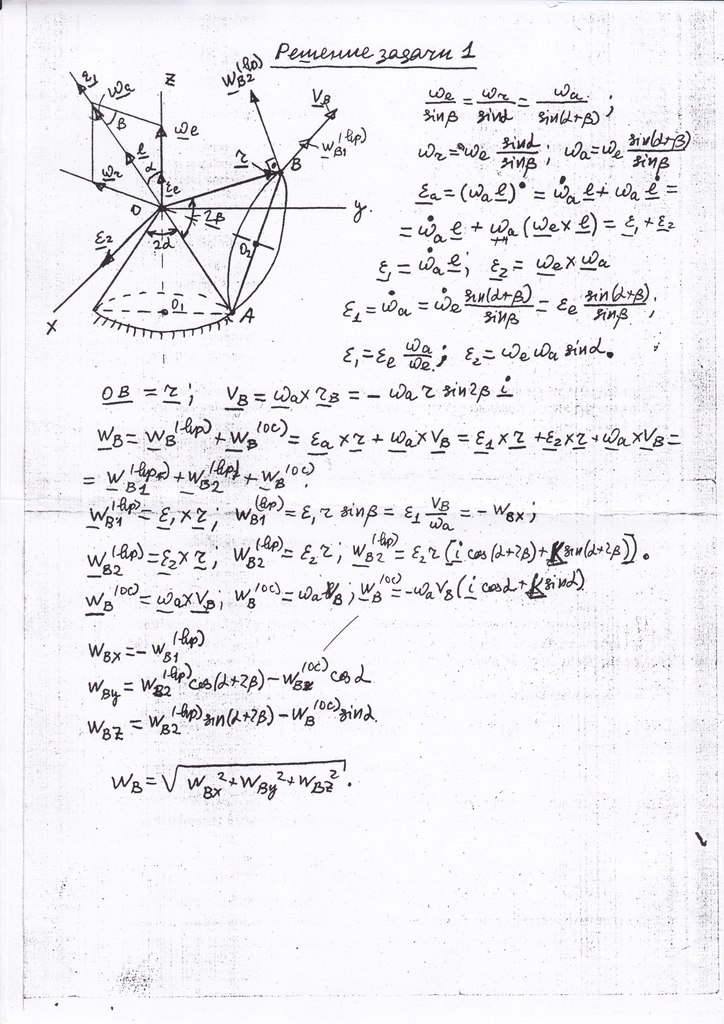 Решение задачи 1
z
ω₁ ωa W_B2^(вр) V_B
β ωe W_B1^(вр)
l α εe r B
ωr O y
ε₂ 2α 2β O₂
x O₁ A
ωe/sinβ = ωr/sinα = ωa/sin(α+β);
ωr = ωe sinα/sinβ; ωa = ωe sin(α+β)/sinβ
εa = (ωa l)• = ω̇a l + ωa l̇ =
= ω̇a l + ωa (ωe × l) = ε₁ + ε₂
ε₁ = ω̇a l; ε₂ = ωe × ωa
ε₁ = ω̇a = ω̇e sin(α+β)/sinβ = εe sin(α+β)/sinβ;
ε₁ = εe ωa/ωe; ε₂ = ωe ωa sinα.
OB = r; V_B = ωa × r_B = − ωa r sin2β i
W_B = W_B^(вр) + W_B^(ос) = εa × r + ωa × V_B = ε₁ × r + ε₂ × r + ωa × V_B =
= W_B1^(вр) + W_B2^(вр) + W_B^(ос).
W_B1^(вр) = ε₁ × r; W_B1^(вр) = ε₁ r sinβ = ε₁ V_B/ωa = − W_Bx;
W_B2^(вр) = ε₂ × r; W_B2^(вр) = ε₂ r; W_B2^(вр) = ε₂ r [i cos(α+2β) + k sin(α+2β)].
W_B^(ос) = ωa × V_B; W_B^(ос) = ωa V_B; W_B^(ос) = −ωa V_B (i cosα + k sinα)
W_Bx = − W_B1^(вр)
W_By = W_B2^(вр) cos(α+2β) − W_B^(ос) cosα
W_Bz = W_B2^(вр) sin(α+2β) − W_B^(ос) sinα.
W_B = √(W_Bx² + W_By² + W_Bz²).